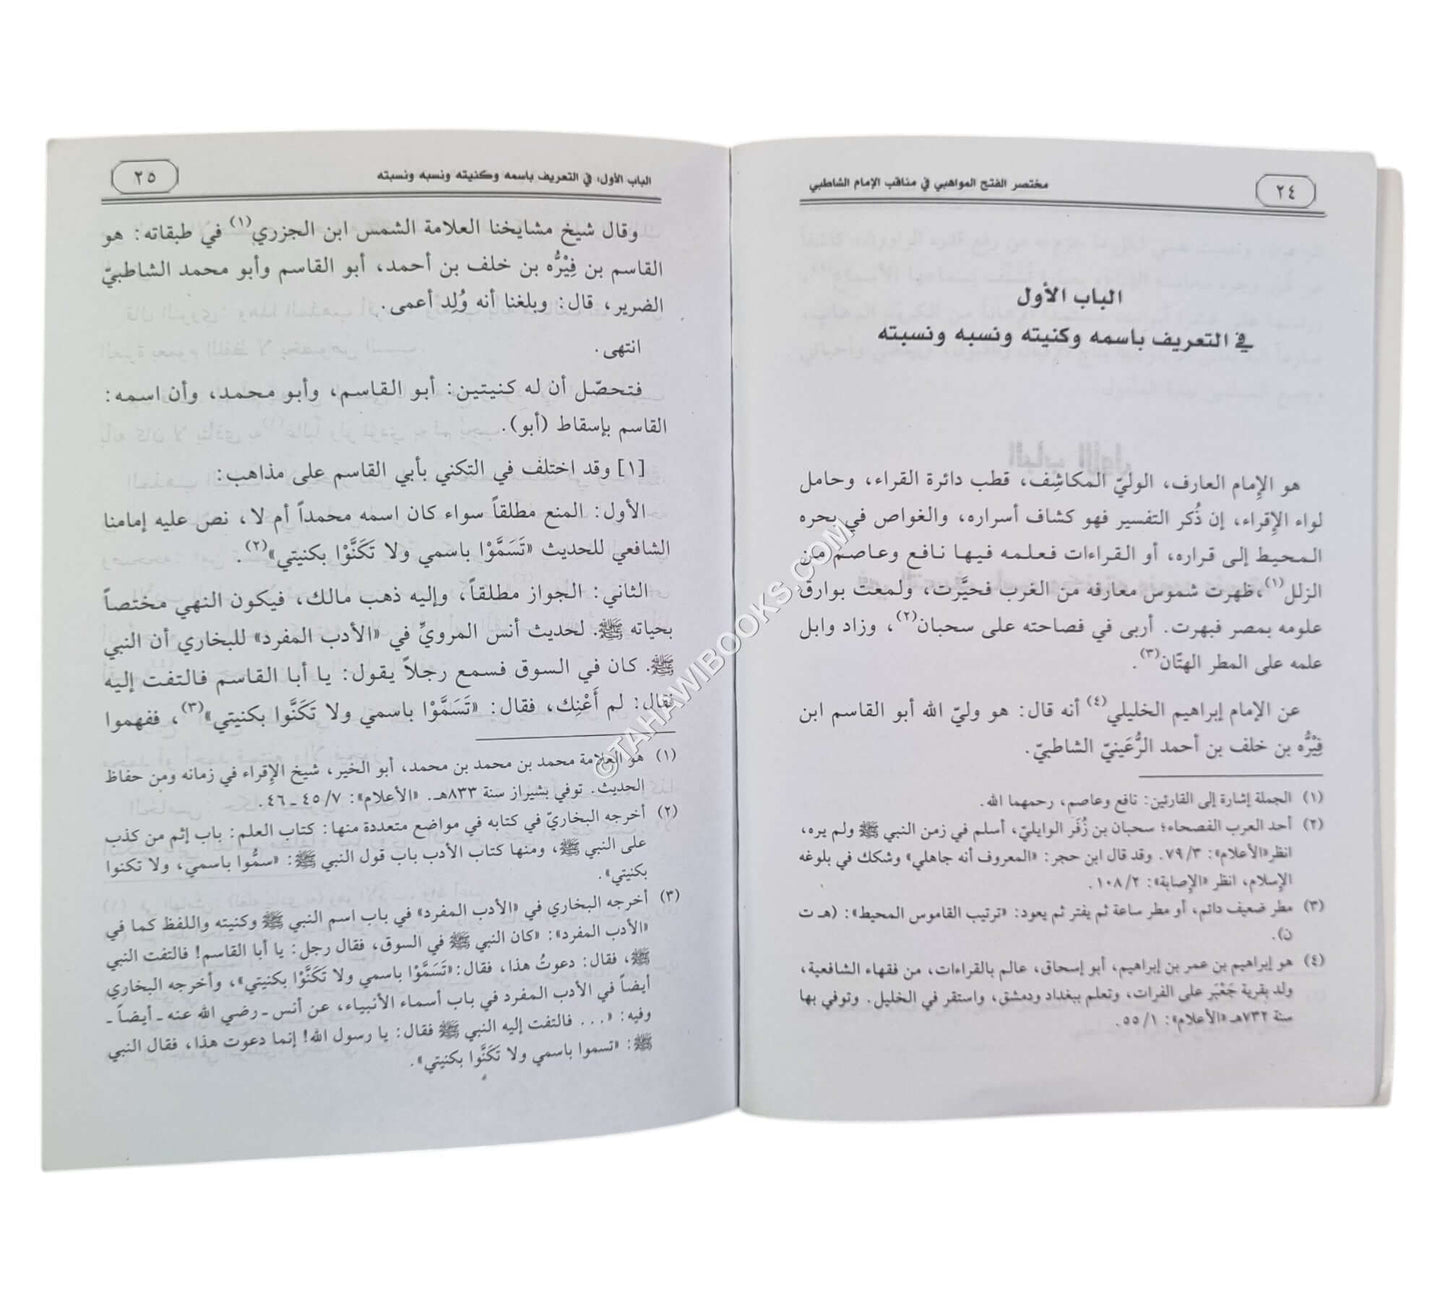 مختصر الفتح المواهبي في مناقب الإمام الشاطبي
٢٤
الباب الأول
في التعريف باسمه وكنيته ونسبه ونسبته
هو الإمام العارف، الوليّ المكاشِف، قطب دائرة القراء، وحامل
لواء الإقراء، إن ذُكر التفسير فهو كشاف أسراره، والغواص في بحره
المحيط إلى قراره، أو القراءات فعلمه فيها نافع وعاصم من
الزلل(١)، ظهرت شموس معارفه من الغرب فحيَّرت، ولمعت بوارق
علومه بمصر فبهرت. أربى في فصاحته على سحبان(٢)، وزاد وابل
علمه على المطر الهتّان(٣).
عن الإمام إبراهيم الخليلي(٤) أنه قال: هو وليّ الله أبو القاسم ابن
فِيْرُّه بن خلف بن أحمد الرُّعَينيّ الشاطبيّ.
(١) الجملة إشارة إلى القارئين: نافع وعاصم، رحمهما الله.
(٢) أحد العرب الفصحاء؛ سحبان بن زُفَر الوايليّ، أسلم في زمن النبي ﷺ ولم يره،
انظر «الأعلام»: ٧٩/٣. وقد قال ابن حجر: «المعروف أنه جاهلي» وشكك في بلوغه
الإسلام، انظر «الإصابة»: ١٠٨/٢.
(٣) مطر ضعيف دائم، أو مطر ساعة ثم يفتر ثم يعود: «ترتيب القاموس المحيط»: (هـ ت
ن).
(٤) هو إبراهيم بن عمر بن إبراهيم، أبو إسحاق، عالم بالقراءات، من فقهاء الشافعية،
ولد بقرية جَعْبَر على الفرات، وتعلم ببغداد ودمشق، واستقر في الخليل. وتوفي بها
سنة ٧٣٢هـ «الأعلام»: ٥٥/١.
الباب الأول، في التعريف باسمه وكنيته ونسبه ونسبته
٢٥
وقال شيخ مشايخنا العلامة الشمس ابن الجزري(١) في طبقاته: هو
القاسم بن فِيْرُّه بن خلف بن أحمد، أبو القاسم وأبو محمد الشاطبيّ
الضرير، قال: وبلغنا أنه وُلِد أعمى.
انتهى.
فتحصّل أن له كنيتين: أبو القاسم، وأبو محمد، وأن اسمه:
القاسم بإسقاط (أبو).
[١] وقد اختلف في التكني بأبي القاسم على مذاهب:
الأول: المنع مطلقاً سواء كان اسمه محمداً أم لا، نص عليه إمامنا
الشافعي للحديث «تَسَمَّوْا باسمي ولا تَكَنَّوْا بكنيتي»(٢).
الثاني: الجواز مطلقاً، وإليه ذهب مالك، فيكون النهي مختصاً
بحياته ﷺ. لحديث أنس المرويِّ في «الأدب المفرد» للبخاري أن النبي
ﷺ. كان في السوق فسمع رجلاً يقول: يا أبا القاسم فالتفت إليه
فقال: لم أَعْنِك، فقال: «تَسَمَّوْا باسمي ولا تَكَنَّوا بكنيتي»(٣)، ففهموا
(١) هو العلامة محمد بن محمد بن محمد، أبو الخير، شيخ الإقراء في زمانه ومن حفاظ
الحديث. توفي بشيراز سنة ٨٣٣هـ. «الأعلام»: ٤٥/٧ ـ ٤٦.
(٢) أخرجه البخاريّ في كتابه في مواضع متعددة منها: كتاب العلم: باب إثم من كذب
على النبي ﷺ، ومنها كتاب الأدب باب قول النبي ﷺ: «سمُّوا باسمي، ولا تكنوا
بكنيتي».
(٣) أخرجه البخاري في «الأدب المفرد» في باب اسم النبي ﷺ وكنيته واللفظ كما في
«الأدب المفرد»: «كان النبي ﷺ في السوق، فقال رجل: يا أبا القاسم! فالتفت النبي
ﷺ، فقال: دعوتُ هذا، فقال: «تَسَمَّوْا باسمي ولا تَكَنَّوْا بكنيتي»، وأخرجه البخاري
أيضاً في الأدب المفرد في باب أسماء الأنبياء، عن أنس ـ رضي الله عنه ـ أيضاً ـ
وفيه: «... فالتفت إليه النبي ﷺ فقال: يا رسول الله! إنما دعوت هذا، فقال النبي
ﷺ: «تسموا باسمي ولا تَكَنَّوا بكنيتي».
©TAHAWIBOOKS.COM